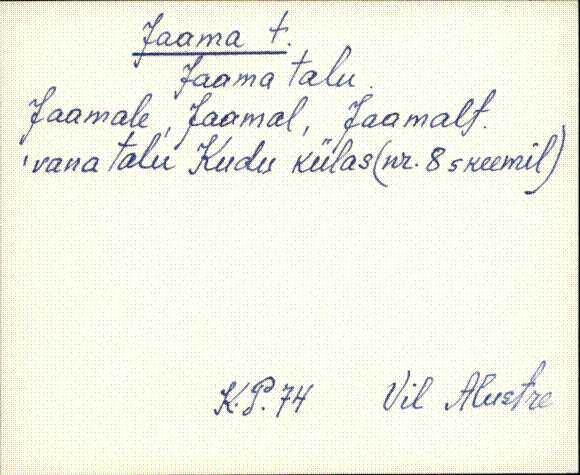 Jaama t.
Jaama talu.
Jaamale, Jaamal, Jaamalt.
'vana talu Kudu külas (nr. 8 skeemil)
K.P. 74 Vil Alustre